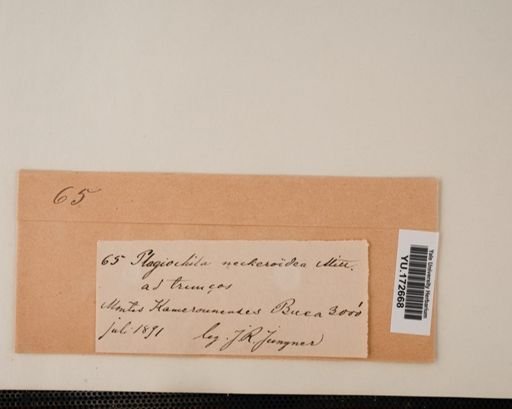 65
65 Plagiochila neckeroidea Mitt.
ad truncos
Montes Kamerunenses Buea 3000'
juli 1891 leg. J R Jungner
Yale University Herbarium
YU.172668